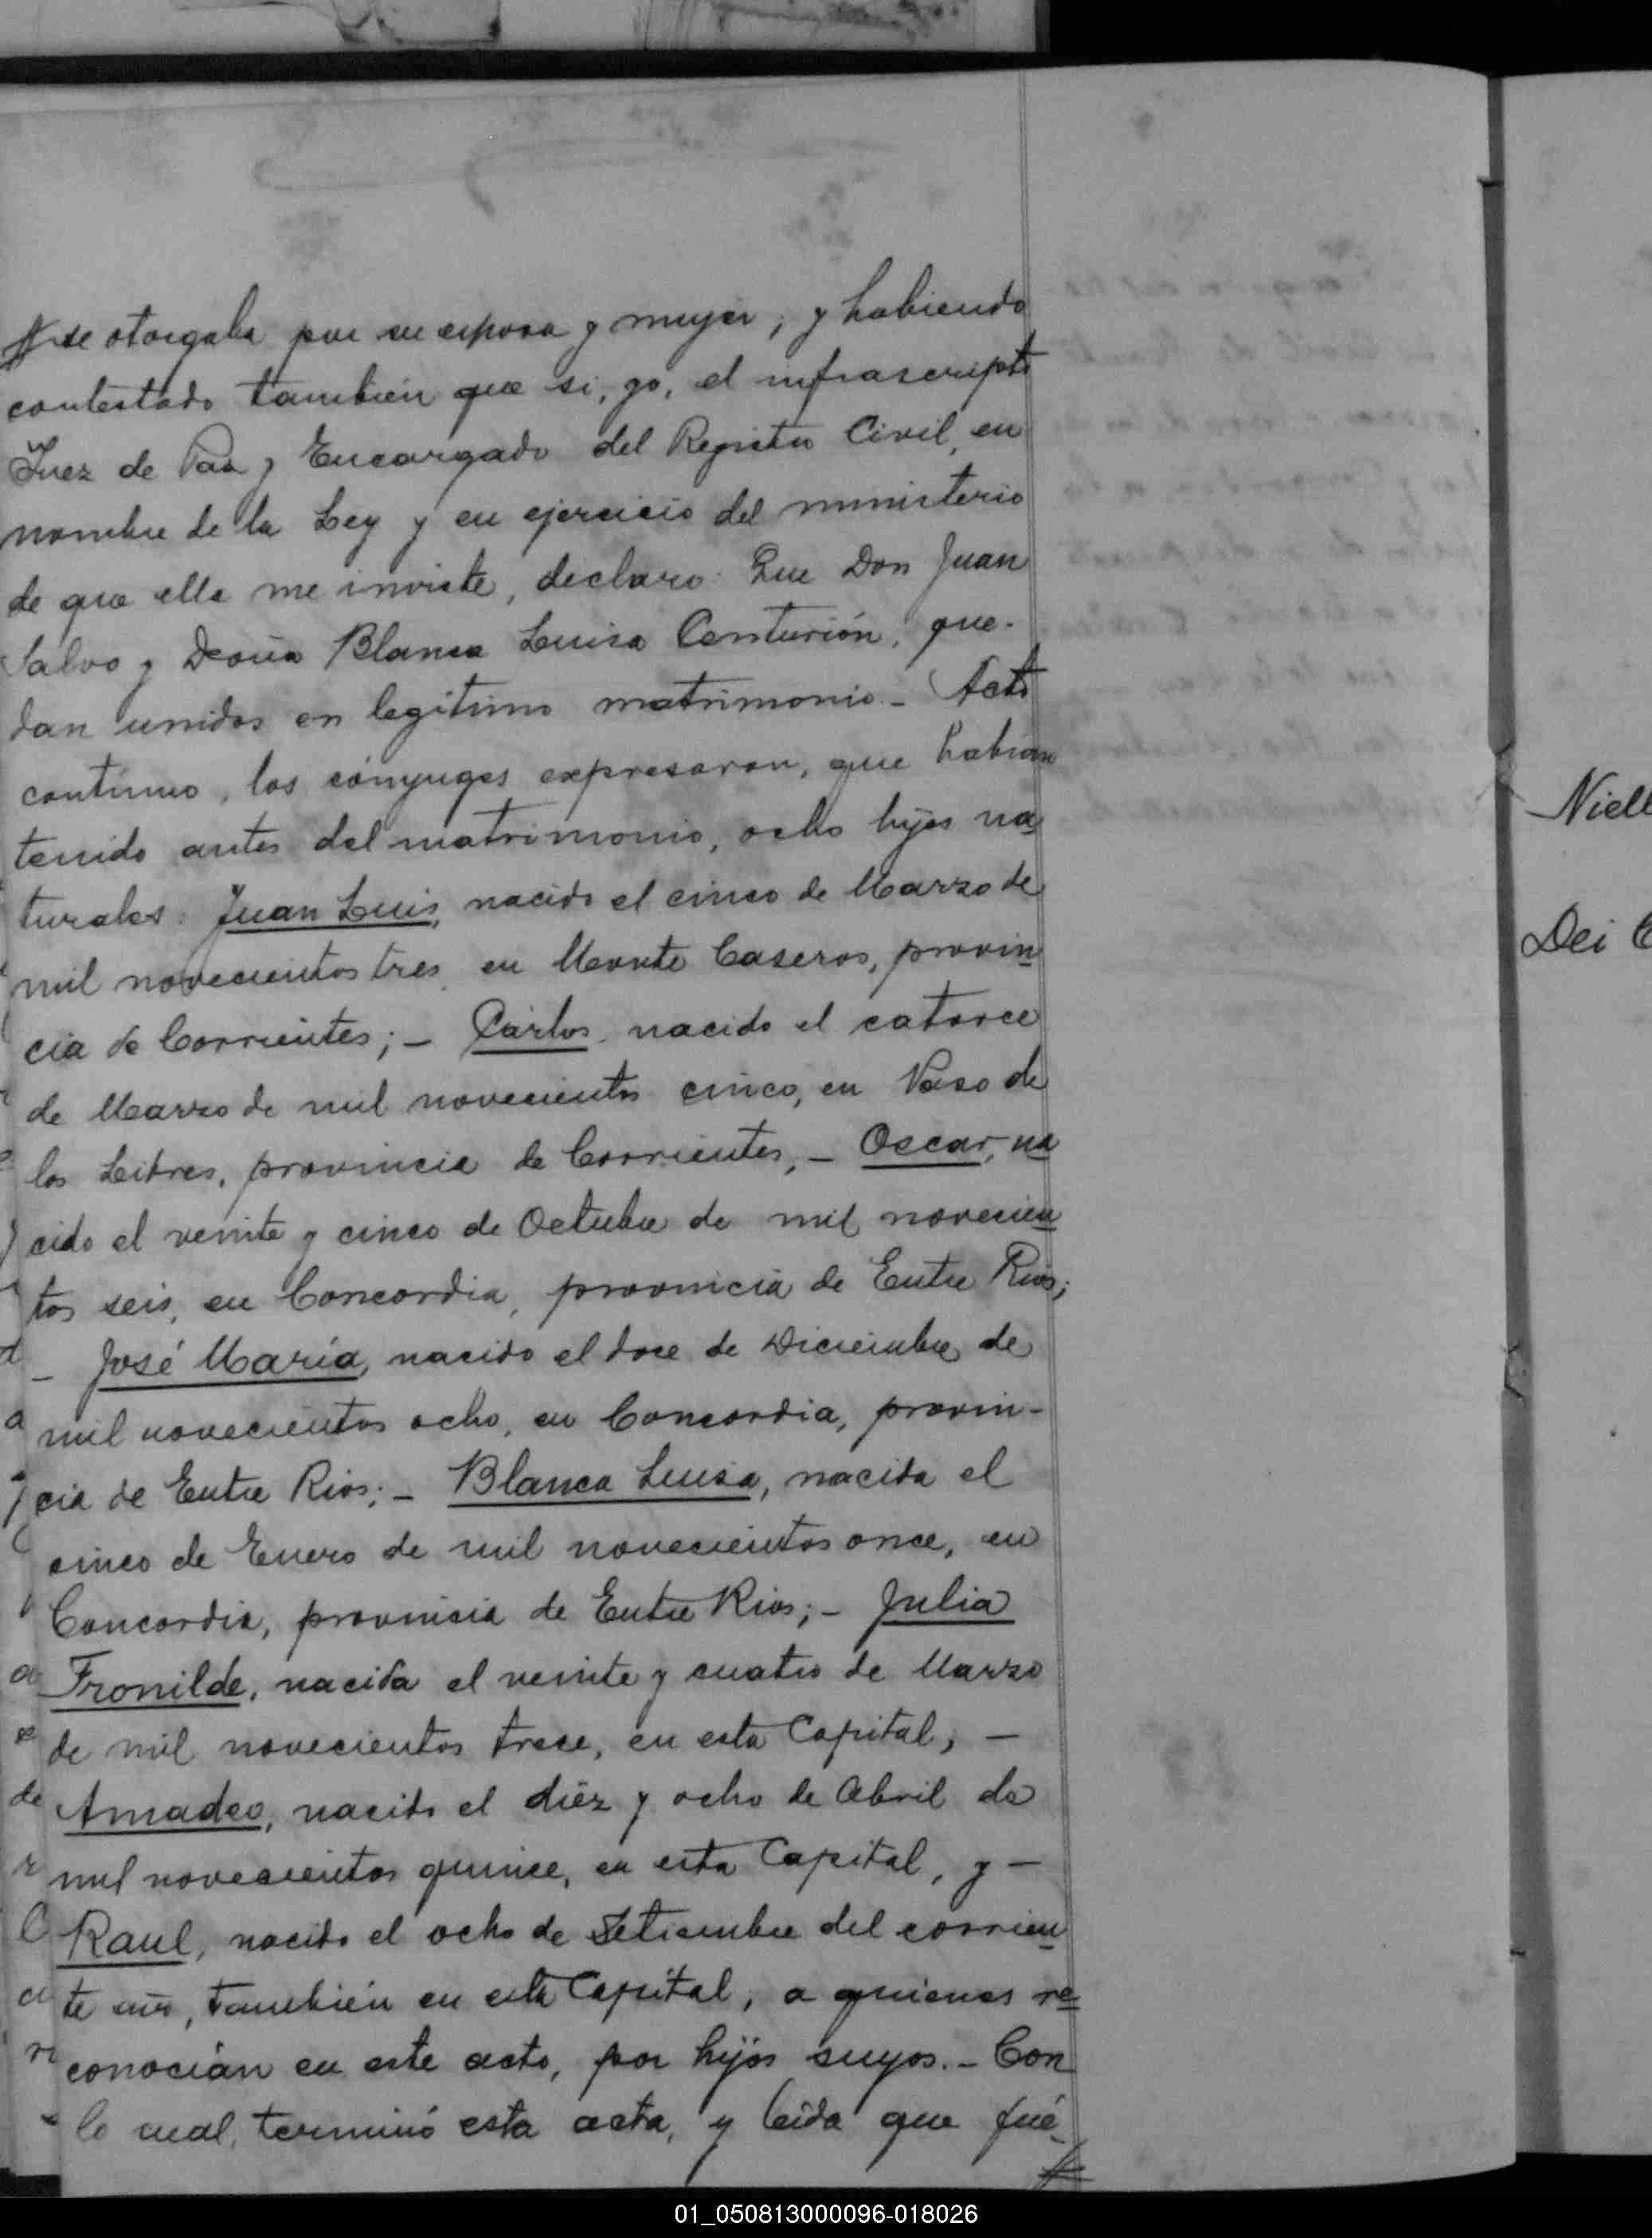 se otorgaba por su esposa y mujer, y habiendo
contestado también que si, yo, el infrascripto
Juez de Paz y Encargado del Registro Civil, en
nombre de la Ley y en ejercicio del ministerio
de que ella me inviste, declaro: Que Don Juan
Salvo y Doña Blanca Luisa Centurión, que-
dan unidos en legítimo matrimonio.- Acto
contínuo, los cónyuges expresaron, que habían
tenido antes del matrimonio, ocho hijos na
turales: Juan Luis, nacido el cinco de Marzo de
mil novecientos tres, en Monte Caseros, provin
cia de Corrientes; - Cárlos, nacido el catorce
de Marzo de mil novecientos cinco, en Paso de
los Libres, provincia de Corrientes, - Oscar, na
cido el veinte y cinco de Octubre de mil novecien
tos seis, en Concordia, provincia de Entre Rios;
- José María, nacido el doce de Diciembre de
mil novecientos ocho, en Concordia, provin-
cia de Entre Rios; - Blanca Luisa, nacida el
cinco de Enero de mil novecientos once, en
Concordia, provincia de Entre Rios; - Julia
Fronilde, nacida el veinte y cuatro de Marzo
de mil novecientos trece, en esta Capital; -
Amadeo, nacido el diéz y ocho de Abril de
mil novecientos quince, en esta Capital, y -
Raul, nacido el ocho de Setiembre del corrien
te año, también en esta Capital, a quienes re
conocían en este acto, por hijos suyos. - Con
lo cual, terminó esta acta, y leída que fué
Niell
Dei C
01_050813000096-018026